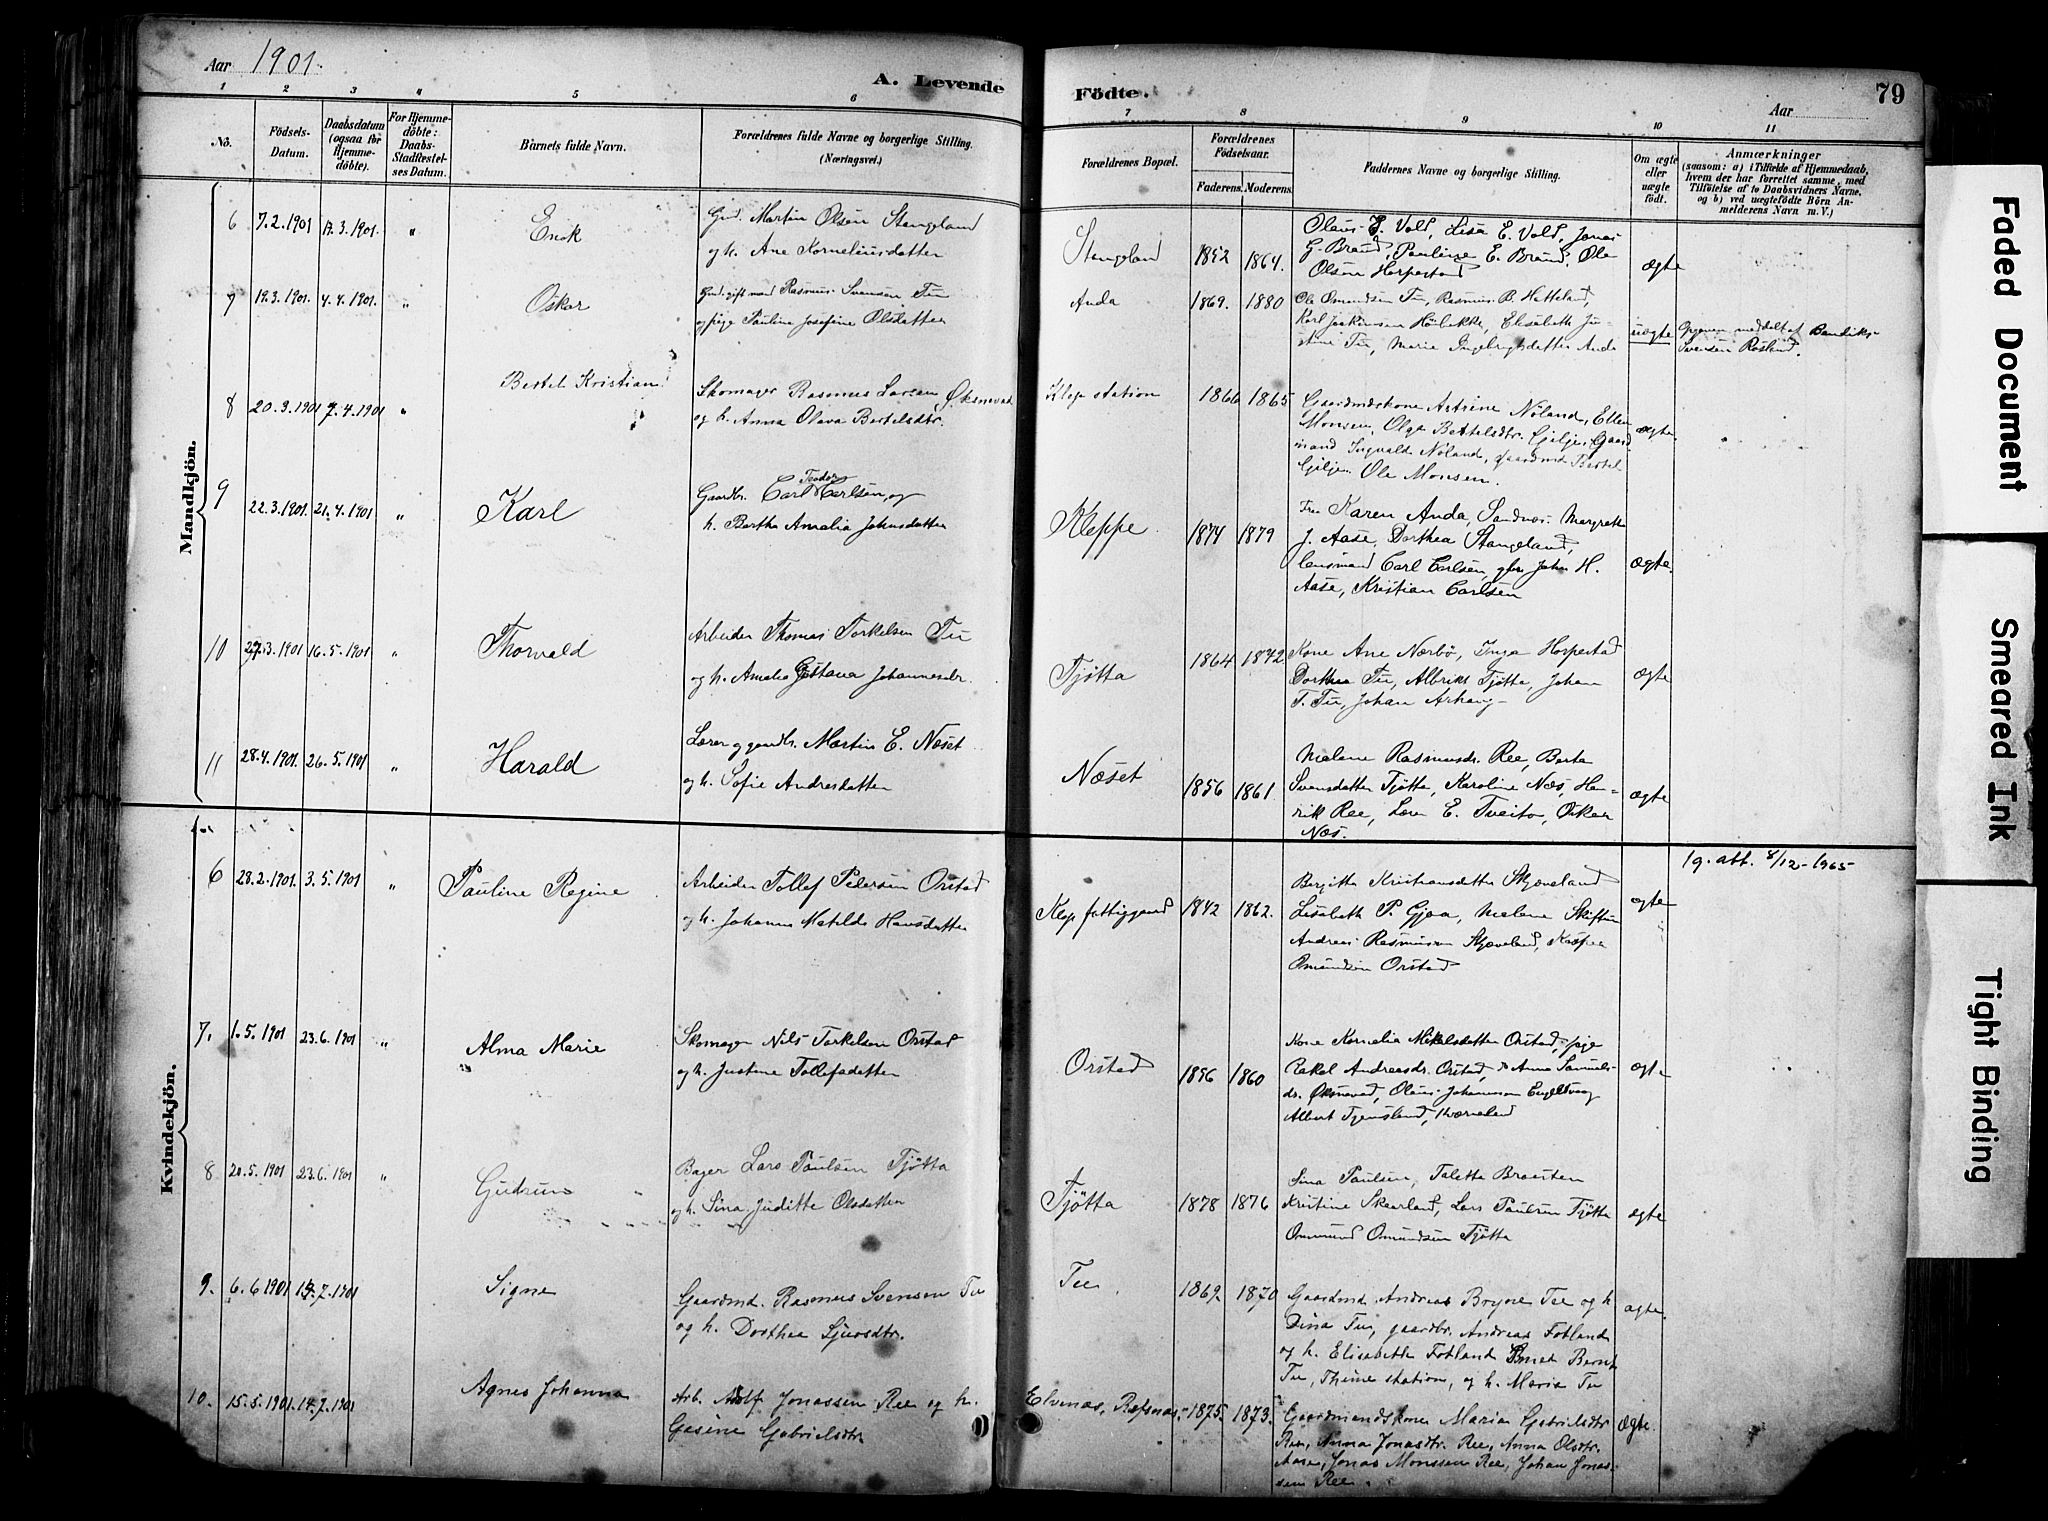 Aar 1901.
A. Levende Födte.
Aar
79
1 2 3 4 5 6 7 8 9 10 11
No.
Födsels-Datum.
Daabsdatum (ogsaa for Hjemmedöbte).
For Hjemmedöbte: Daabs-Stadfæstelses Datum.
Barnets fulde Navn.
Forældrenes fulde Navne og borgerlige Stilling. (Næringsvei.)
Forældrenes Bopæl.
Forældrenes Födselsaar.
Faderens. Moderens.
Faddernes Navne og borgerlige Stilling.
Om ægte eller uægte födt.
Anmærkninger
(saasom: a) i Tilfælde af Hjemmedaab, hvem der har forrettet samme, med Tilföielse af to Daabsvidners Navne, og b) ved uægtefödte Börn Anmelderens Navn m. V.)
Mandkjön.
6 7.2.1901 17.3.1901. " Enok
Gmd. Martin Olsen Stangeland
og h. Ane Korneliusdatter
Stangeland 1852 1864.
Olaus E. Vold, Lisa E. Vold, Jonas
G. Braud, Pauline E. Braud, Ole
Olsen Horpestad
ægte
7 19.3.1901. 4.4.1901. " Oskar
Gmd. gift mand Rasmus Svensen Tu
og pige Pauline Josefine Olsdatter
Anda 1869. 1880
Ole Omundsen Tu, Rasmus B. Hatteland,
Karl Joakimsen, Elisabeth Ju-
stine Tu, Marie Ingebrigtsdatter Anda
uægte
Opgaven meddelt af Bendik
Svensen Rosland.
8 20.3.1901 7.4.1901 " Bertel Kristian
Skomager Rasmus Larsen Øksnevad
og h. Anna Olava Bertelsdtr.
Klep station 1866 1865
Gaardmdskone Astrine Nöland, Ellen
Monsen, Olga Bertelsdtr. Gilje, Gaard
mand Ingvald Nöland, gaardmd Bertel
Gilje, Ole Monsen.
ægte
9 22.3.1901. 21.4.1901 " Karl
Gaardbr. Carl Teodor Carlsen, og
h. Bertha Amalia Johnsdatter
Kleppe. 1874 1879
Fru Karen Anda, Sandnæs. Margrethe
J. Aase, Dorthea Stangeland,
lensmand Carl Carlsen, gbr. John H.
Aase, Kristian Carlsen
ægte.
10 27.3.1901 16.5.1901 " Thorvald
Arbeider Thomas Torkelsen Tu
og h. Amalia Gustava Johannesdr.
Tjötta 1864 1872
Kone Ane Nærbö, Inga Horpestad
Dorthea Tu, Albrikt Tjötta, Johan
T. Tu, Johan Arhaug
ægte
11 28.4.1901. 26.5.1901 " Harald
Lærer og gaardbr. Martin E. Næset
og h. Sofie Andreasdatter
Næset 1856 1861
Malene Rasmusdr. Ree, Berta
Svensdatter Tjötta, Karoline Næs, Hen-
rik Ree, Lærer E. Tveito, Oskar
Næs.
ægte
Kvindekjön.
6 28.2.1901. 3.5.1901 " Pauline Regine
Arbeider Tollef Pedersen Orstad
og h. Johanne Matilde Hansdatter
Klep fattiggaard 1842 1862.
Bergitta Kristiansdatter Skjæveland
Lisabeth P. Gjøa, Malene
Andreas Rasmussen Skjæveland, Kasper
Omundsen Orstad
ægte
19. att. 8/12-1965
7. 1.5.1901 23.6.1901 " Alma Marie
Skomager Nils Torkelsen Orstad
og h. Justine Tollefsdatter
Orstad 1856 1860
Kone Kornelia Mikalsdatter Orstad, pige
Rakel Andreasdr. Orstad, do Anna Samuels-
dr. Øksnevad, Olaus Johannesen Engelsvaag
Albert Tjensland, Kværneland
ægte
8 20.5.1901 23.6.1901 " Gudrun
Bager Lars Paulsen Tjötta
og h. Sina Juditte Olsdatter
Tjötta 1878 1876
Sina Paulsen, Taletta Braasten
Kristine Skaarland, Lars Paulsen Tjötta
Ommund Omundsen Tjötta
ægte
9. 6.6.1901 14.7.1901 Signe
Gaardmd. Rasmus Svensen Tu
og h. Dorthea Sjursdtr.
Tu. 1862 1870
Gaardmd. Andreas Bryne Tu og h.
Dina Tu, gaardbr. Andreas Fotland
og h. Elisabeth Fotland Smed Bernt
Tu, Thime station, og h. Maria Tu
ægte.
10. 15.5.1901 14.7.1901 Agnes Johanna
Arb. Adolf Jonassen Ree og h.
Gesine Gabrielsdtr.
Elvenæs, Refsnæs 1875. 1873.
Gaardmandskone Maria Gabrielsdtr
Ree, Anna Jonasdtr. Ree, Anna Olsdtr.
Aase, Jonas Monssen Ree, Johan Jonas-
sen Ree.
Ægte.
Faded Document
Smeared Ink
Tight Binding